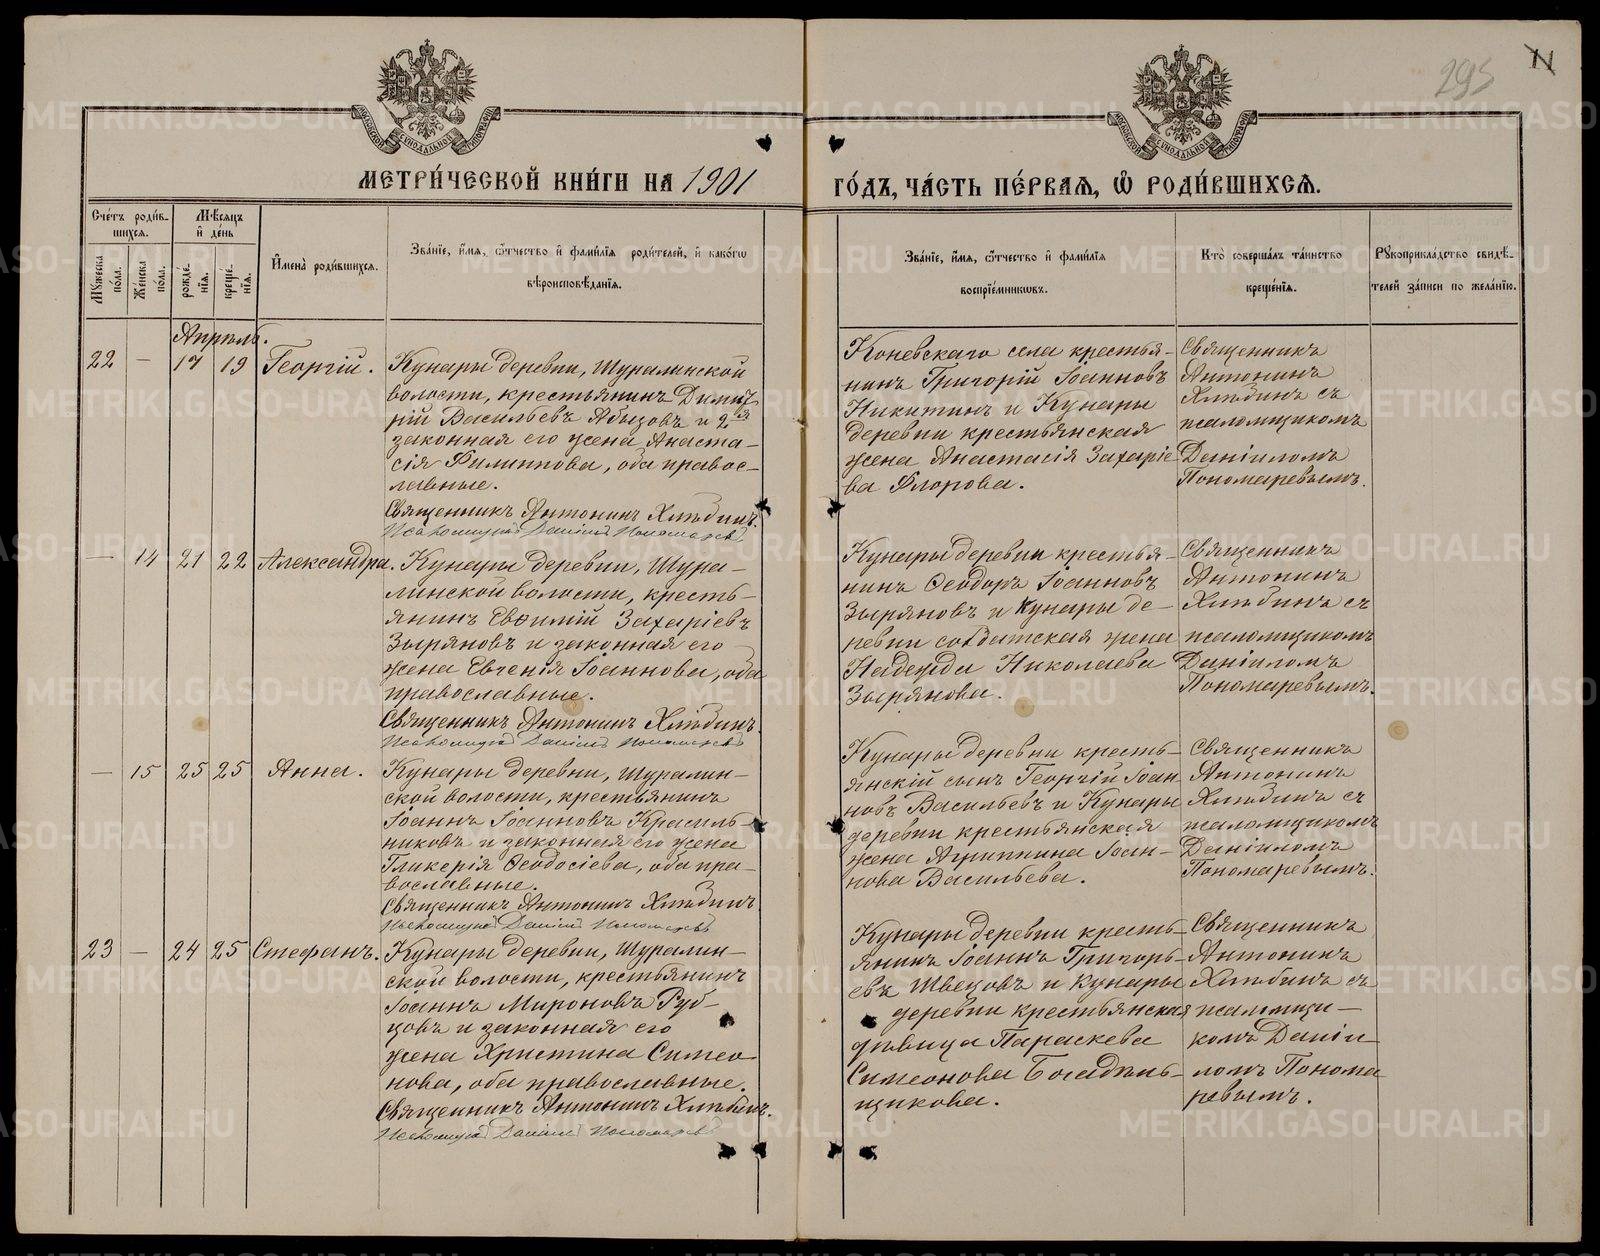 295
11
МЕТРИ́ЧЕСКОЙ КНИ́ГИ НА 1901 ГО́ДЪ, ЧА́СТЬ ПЕ́РВАѦ, Ѡ҆ РОДИ́ВШИХСѦ.
Сче́тъ роди́в-
шихсѧ.
Мѣ́сѧцъ
и҆ де́нь
Мꙋ́жеска по́ла.
Же́нска по́ла.
рожде́-
нїѧ.
креще́-
нїѧ.
И҆мена̀ роди́вшихсѧ.
Зва́нїе, и҆́мѧ, ѻ҆́тчество и҆ фами́лїѧ роди́телей, и҆ како́гѡ
вѣроисповѣ́данїѧ.
Зва́нїе, и҆́мѧ, ѻ҆́тчество и҆ фами́лїѧ
воспрїе́мникѡвъ.
Кто̀ соверша́лъ та́инство
креще́нїѧ.
Рꙋкоприкла́дство свидѣ́-
телей за́писи по жела́нїю.
Апрѣль.
22 — 17 19 Георгій.
Кунары деревни, Шуралинской
волости, крестьянинъ Димит-
рій Васильевъ Абызовъ и 2я
законная его жена Анаста-
сія Филиппова, оба правос-
лавные.
Священникъ Антонинъ Хлѣбинъ.
Псаломщикъ Даніилъ Пономаревъ
Коневскаго села крестья-
нинъ Григорій Іоанновъ
Никитинъ и Кунары
деревни крестьянская
жена Анастасія Захаріе-
ва Флорова.
Священникъ
Антонинъ
Хлѣбинъ съ
псаломщикомъ
Даніиломъ
Пономаревымъ.
— 14 21 22 Александра.
Кунары деревни, Шура-
линской волости, кресть-
янинъ Евѳимій Захаріевъ
Зыряновъ и законная его
жена Евгенія Іоаннова, оба
православные.
Священникъ Антонинъ Хлѣбинъ.
Псаломщикъ Даніилъ Пономаревъ
Кунары деревни крестья-
нинъ Ѳеодоръ Іоанновъ
Зыряновъ и Кунары де-
ревни солдатская жена
Надежда Николаева
Зырянова.
Священникъ
Антонинъ
Хлѣбинъ съ
псаломщикомъ
Даніиломъ
Пономаревымъ.
— 15 25 25 Анна.
Кунары деревни, Шуралин-
ской волости, крестьянинъ
Іоаннъ Іоанновъ Красиль-
никовъ и законная его жена
Гликерія Ѳеодосіева, оба пра-
вославные.
Священникъ Антонинъ Хлѣбинъ
Псаломщикъ Даніилъ Пономаревъ
Кунары деревни кресть-
янскій сынъ Георгій Іоан
новъ Васильевъ и Кунары
деревни крестьянская
жена Агриппина Іоан-
нова Васильева.
Священникъ
Антонинъ
Хлѣбинъ съ
псаломщикомъ
Даніиломъ
Пономаревымъ.
23 — 24 25 Стефанъ.
Кунары деревни, Шуралин-
ской волости, крестьянинъ
Іоаннъ Мироновъ Руб-
цовъ и законная его
жена Христина Симео-
нова, оба православные.
Священникъ Антонинъ Хлѣбинъ.
Псаломщикъ Даніилъ Пономаревъ
Кунары деревни кресть-
янинъ Іоаннъ Григорь-
евъ Швецовъ и Кунары
деревни крестьянская
дѣвица Параскева
Симеонова Богадѣль-
щикова.
Священникъ
Антонинъ
Хлѣбинъ съ
псаломщи-
комъ Даніи-
ломъ Понома
ревымъ.
METRIKI.GASO-URAL.RU